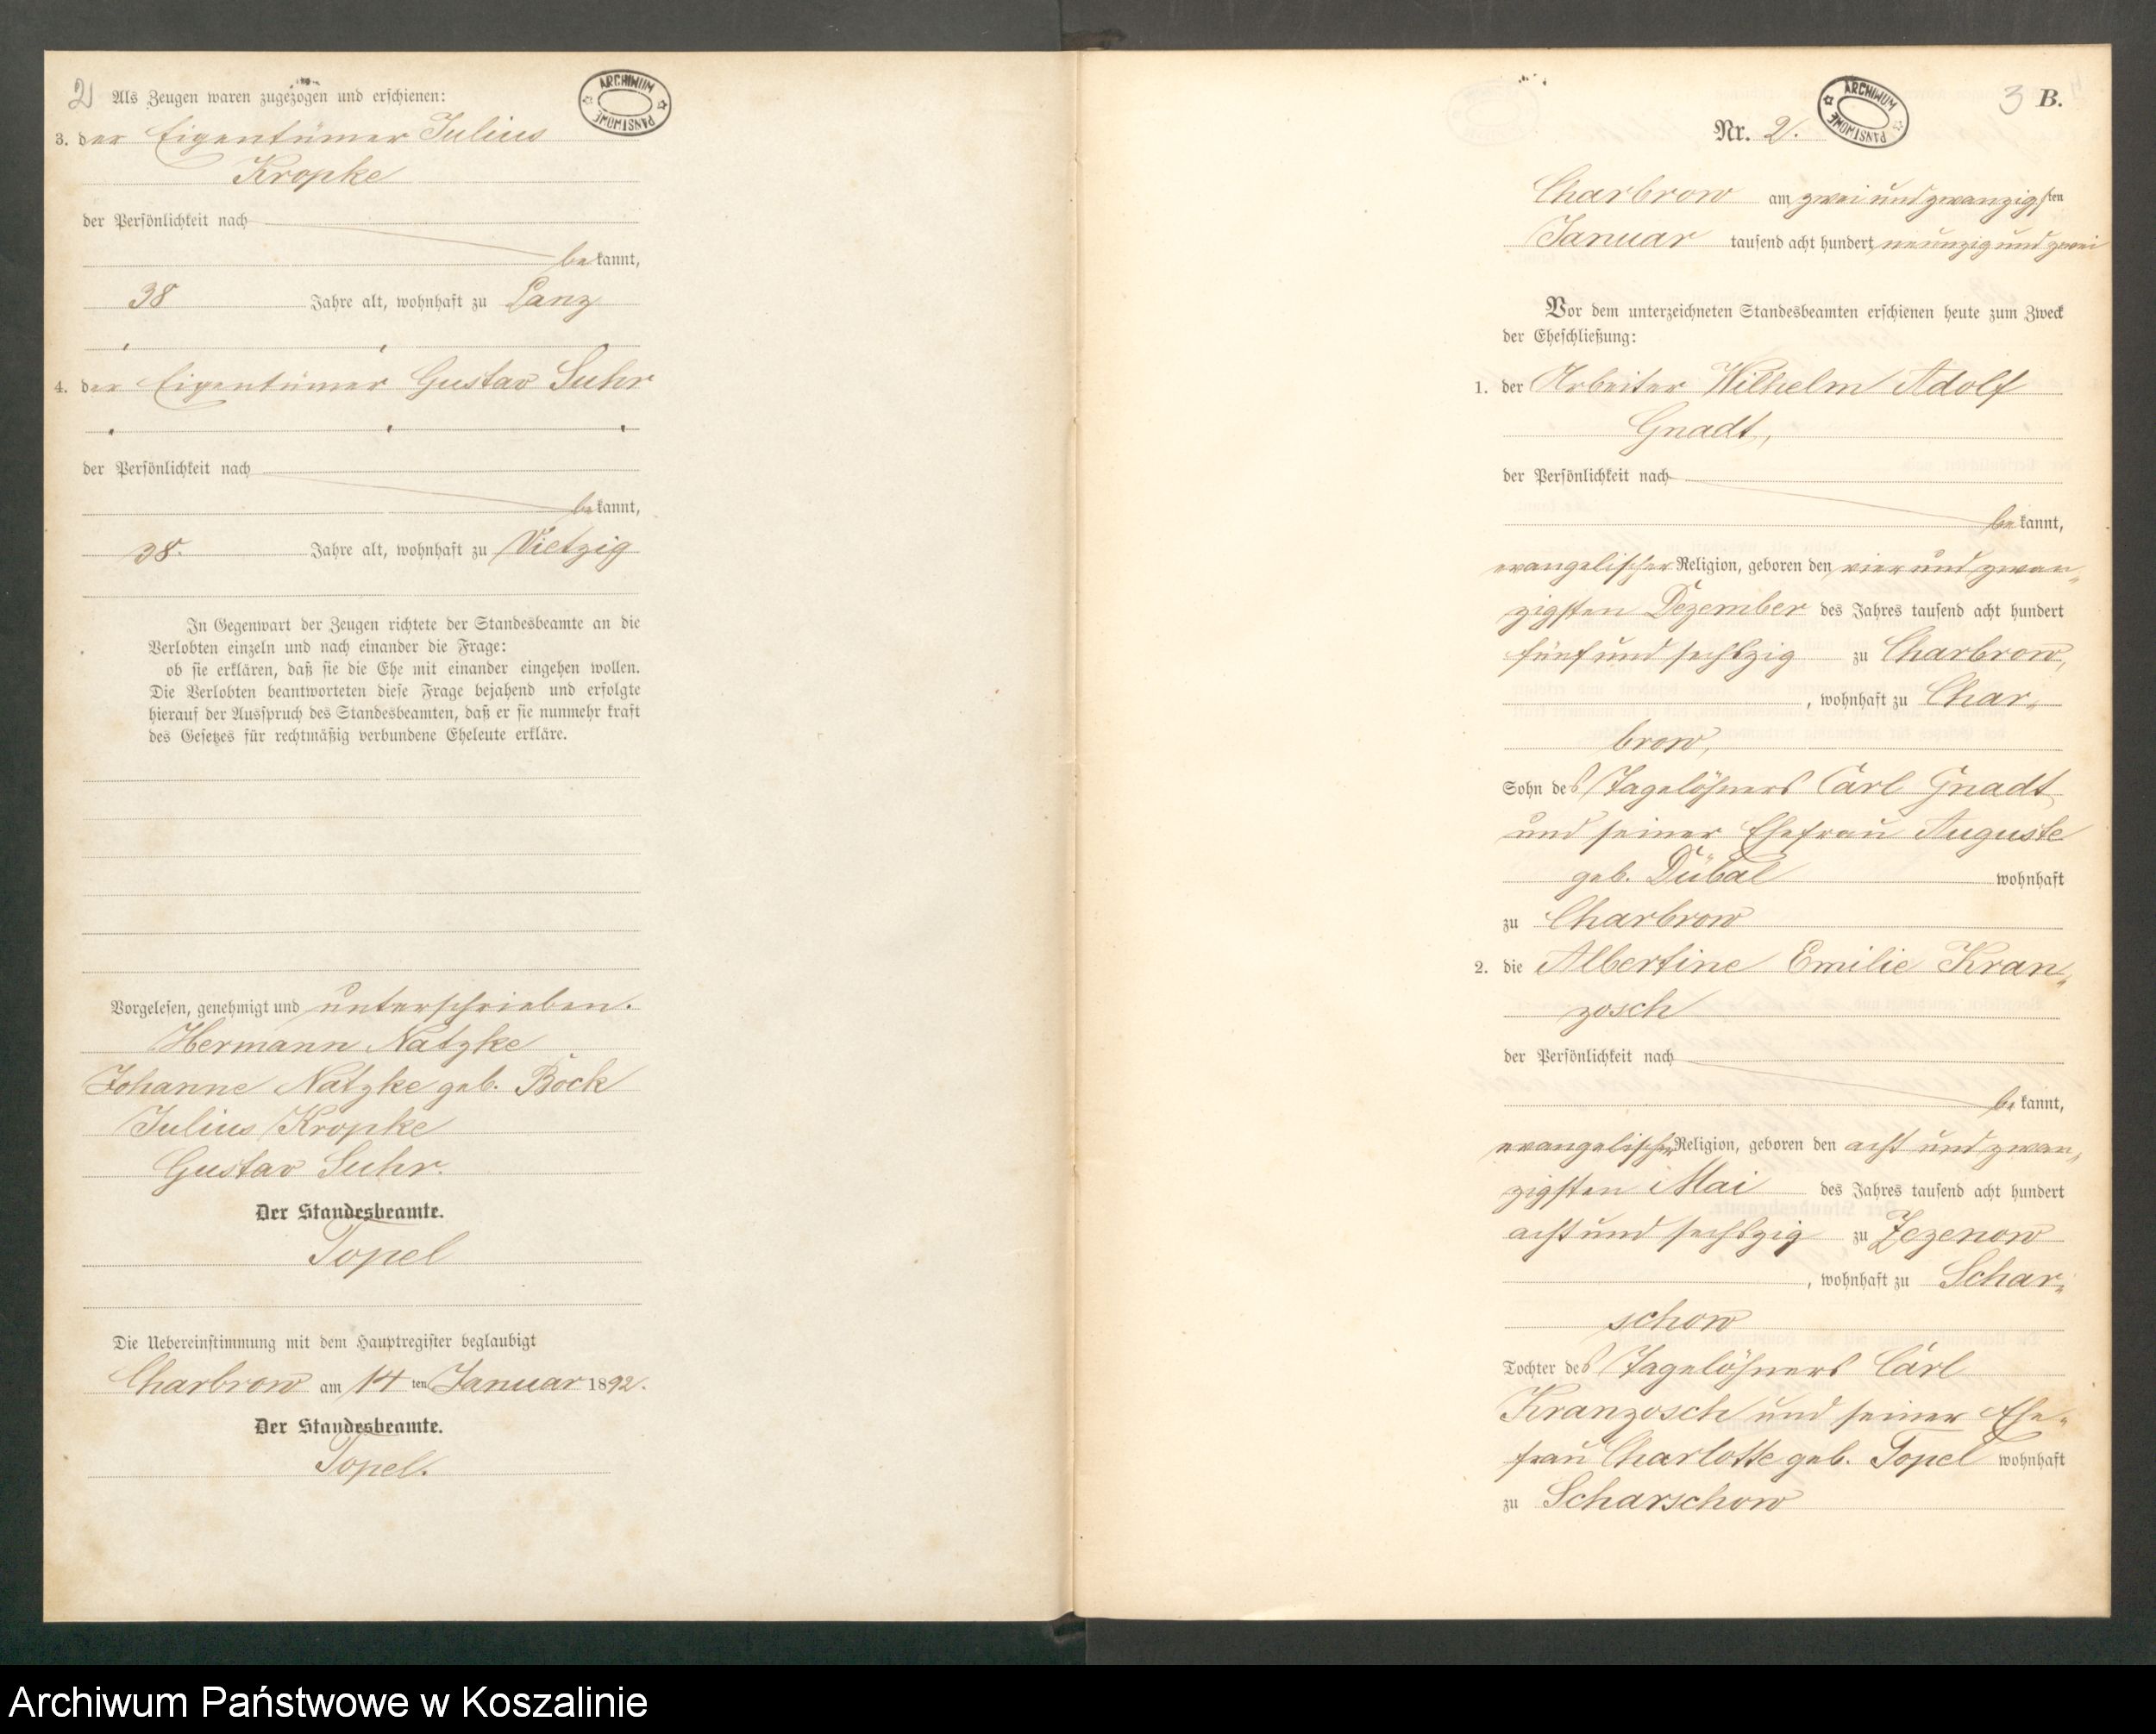 2
Als Zeugen waren zugezogen und erschienen:
ARCHIWUM PAŃSTWOWE
3. der Eigentümer Julius
Kropke
der Persönlichkeit nach
bekannt,
38 Jahre alt, wohnhaft zu Lanz
4. der Eigentümer Gustav Suhr
der Persönlichkeit nach
bekannt,
38. Jahre alt, wohnhaft zu Vietzig
In Gegenwart der Zeugen richtete der Standesbeamte an die
Verlobten einzeln und nach einander die Frage:
ob sie erklären, daß sie die Ehe mit einander eingehen wollen.
Die Verlobten beantworteten diese Frage bejahend und erfolgte
hierauf der Ausspruch des Standesbeamten, daß er sie nunmehr kraft
des Gesetzes für rechtmäßig verbundene Eheleute erkläre.
Vorgelesen, genehmigt und unterschrieben.
Hermann Natzke
Johanne Natzke geb. Bock
Julius Kropke
Gustav Suhr.
Der Standesbeamte.
Topel
Die Uebereinstimmung mit dem Hauptregister beglaubigt
Charbrow am 14ten Januar 1892.
Der Standesbeamte.
Topel.
3 B.
ARCHIWUM PAŃSTWOWE
Nr. 2.
Charbrow am zwei und zwanzigsten
Januar tausend acht hundert neunzig und zwei
Vor dem unterzeichneten Standesbeamten erschienen heute zum Zweck
der Eheschließung:
1. der Arbeiter Wilhelm Adolf
Gnadt,
der Persönlichkeit nach
bekannt,
evangelischer Religion, geboren den vier und zwan-
zigsten Dezember des Jahres tausend acht hundert
fünf und sechszig zu Charbrow,
, wohnhaft zu Char-
brow,
Sohn des Tagelöhners Carl Gnadt
und seiner Ehefrau Auguste
geb. Dübal wohnhaft
zu Charbrow
2. die Albertine Emilie Kran-
zosch
der Persönlichkeit nach
bekannt,
evangelischer Religion, geboren den acht und zwan-
zigsten Mai des Jahres tausend acht hundert
acht und sechszig zu Zezenow
, wohnhaft zu Schar-
schow
Tochter des Tagelöhners Carl
Kranzosch und seiner Ehe-
frau Charlotte geb. Topel wohnhaft
zu Scharschow
Archiwum Państwowe w Koszalinie